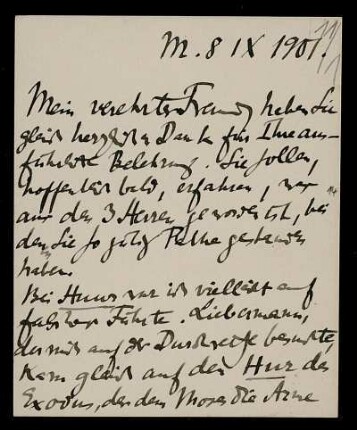 M. 8 IX 1901.
Mein verehrter Freund, haben Sie
gleich herzlichen Dank für Ihre aus-
führliche Belehrung. Sie sollen,
hoffentlich bald, erfahren, was
aus den 3 Herren geworden ist, bei
denen Sie so gütig Pathe gestanden
haben.
Bei Huur war ich vielleicht auf
falscher Fährte. Liebermann,
der mich auf der Durchreise besuchte,
kam gleich auf den Hur des
Exodus, der dem Moses die Arme